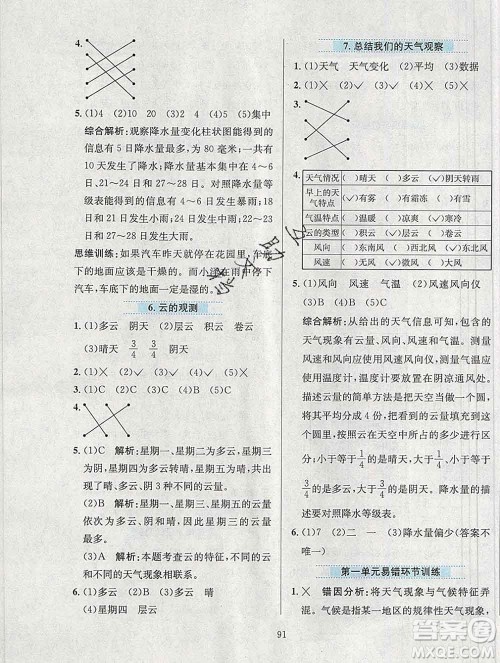 4.
5. (1)4 (2)10 (3)2 (4)2 (5)集中
综合解析:观察降水量变化柱状图能得到的
信息有很多,例如:这个地区一个月共有
10天发生了降水;27日发生的降水量
最多;降水量基本集中在4～6
日和27～28日。对照降水量等级
标准可得到4～6日发生中到大雨,
27日发生暴雨。
思维训练:如果汽车昨天就停在花园里,车底
下的地面应该是干燥的。而小
汽车,车底下的地面一定是湿的。
6.云的观测
1. (1)多云 阴天 (2)层云 积云 卷云
(3)晴天 3/4 3/4 阴天
2. (1)× (2)√ (3)× (4)√ (5)×
3. (1)C (2)A (3)B (4)B (5)C
4.
5. (1)C 解析:星期一、星期二为多云,星期三
为阴,星期四为多云转晴,星期五为晴,星期
三和星期五为不同的云量。
(2)B 解析:星期一、星期三、星期五的云量
依次为多云、阴、晴,对应的云量图为B。
(3)A 解析:本题考查云的观测,不同的云
与不同的天气现象相联系。
6. (1)星期四 层云 (2)晴天
7.总结我们的天气观察
1. (1)天气 天气变化 (2)平均 (3)数据
2. (1)× (2)√ (3)√ (4)× (5)√
3.
4. 天气情况 ( )晴天 ( )多云 (√)阴天转雨
早上的天气特点 (√)有雾 ( )有霜冻 ( )有雪
气温特点 ( )温暖 (√)凉爽 ( )寒冷
云的类型 ( )积云 (√)层云 ( )卷云
风向
风速
5. (1)风向 风速 气温 (2)风速风向仪
综合解析:从给出的天气信息可以知道,包含
的天气现象有云量、风向、风速和气温。测量
风速和风向应使用风速风向仪,测量气温应
使用温度计并将其放在阴凉通风处。描述
云量的简单方法是把天空当成一个圆,并将
其平均分成四份,观察云量最多可以充满这
个圆里的几份。如果天空中没有云或云量
小于等于1/4的是晴天,大于1/4、小于等于3/4的
是多云,大于3/4的是阴天。描述降水量多少
可以参照降水量等级表。
6. (1)7 (2)二 一 (3)降水量偏少(答案
不唯一)
第一单元易错环节训练
1. × 错因分析:将天气现象与气候特征弄
混。气候是指某一地区的规律性天气现象,
91
答案圈
MXQE.COM